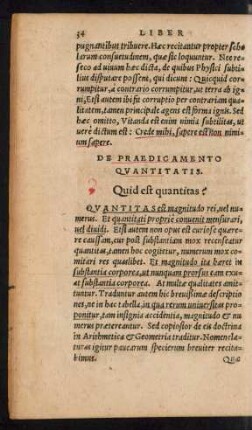 34 LIBER
pugnantibus tribuere. Hæc recitantur propter scho
larum consuetudinem, quæ sic loquuntur. Nec re-
seco ad unum hæc dicta, de quibus Physici subti-
lius disputare possent, qui dicunt: Quicquid cor-
rumpitur, à contrario corrumpitur, ut terra ab ig-
ni, Est autem ibi sic corruptio per contrariam qua-
litatem, tamen principale agens est forma ignis. Sed
hæc omitto, Vitanda est enim nimia subtilitas, ut
uere dictum est: Crede mihi, sapere est non nimi-
um sapere.
DE PRAEDICAMENTO
QVANTITATIS.
Quid est quantitas?
QVANTITAS est magnitudo rei, uel nu-
merus. Et quantitati proprie conuenit mensurari,
uel diuidi. Est autem non opus est curiose quære-
re caussam, cur post substantiam mox recenseatur
quantitas, tamen hoc cogitetur, numerum mox co-
mitari res quaslibet. Et magnitudo ita hæret in
substantia corporea, ut nunquam prorsus eam exu-
at substantia corporea. At multæ qualitates amit-
tuntur. Traduntur autem hic breuissimæ descriptio
nes, ne in hac tabella, in qua rerum uniuersitas pro-
ponitur, tam insignia accidentia, magnitudo & nu
merus prætereantur. Sed copiosior de eis doctrina
in Arithmetica & Geometria traditur. Nomencla-
turas igitur paucarum specierum breuiter recita-
bimus. Quæ